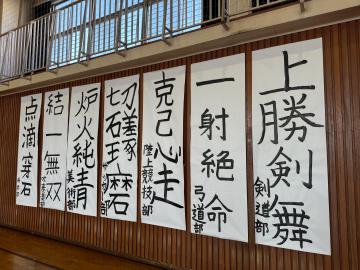 上勝剣舞
剣道部
一射絶命
弓道部
克己心走
陸上競技部
切磋琢磨
炉火純青
美術部
結一無双
点滴穿石